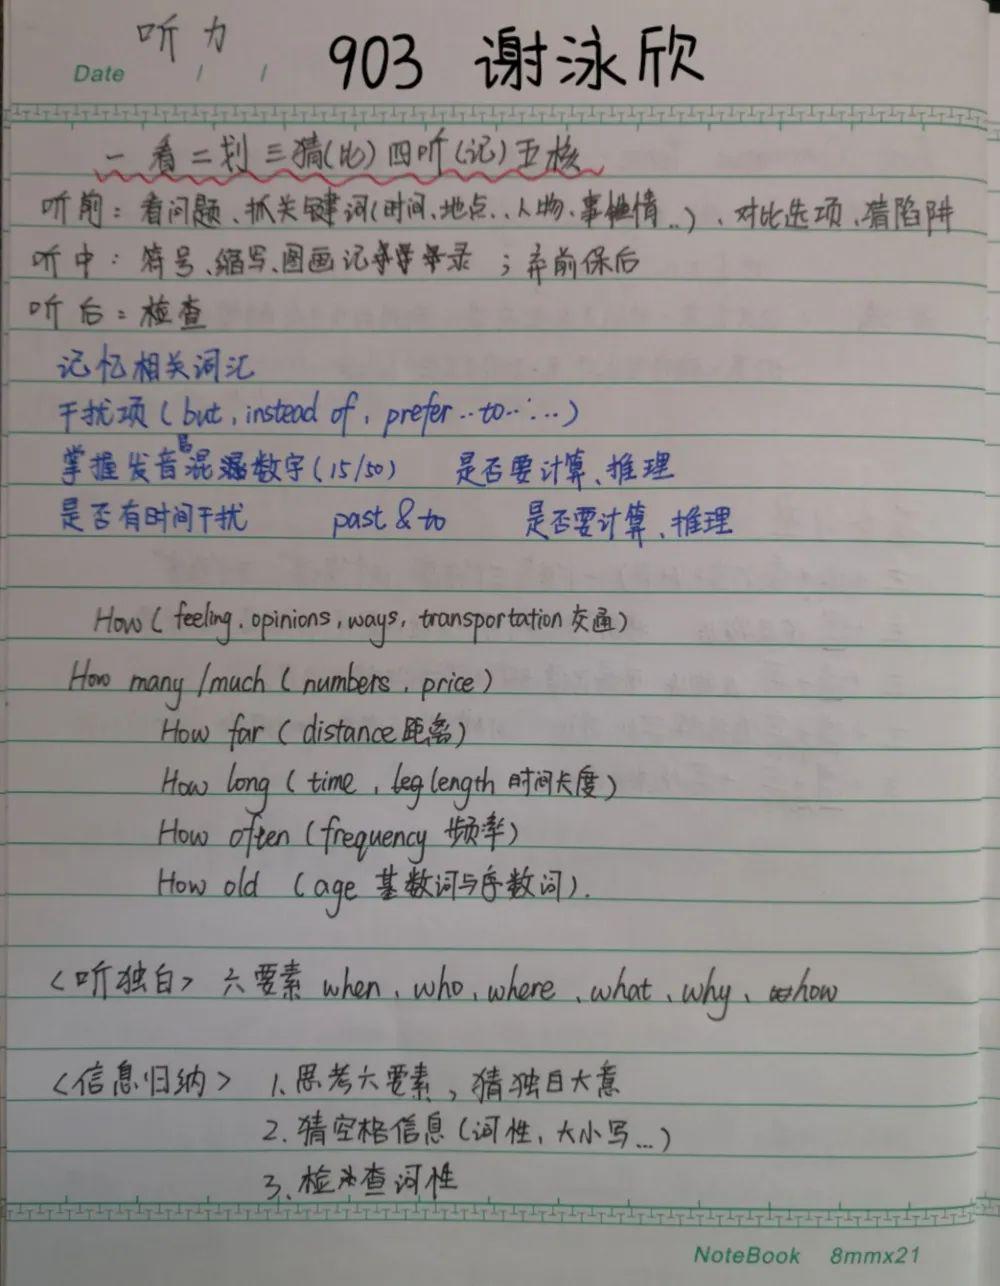 听力
903 谢泳欣
Date / /
一看二划三猜(比)四听(记)五核
听前：看问题、抓关键词(时间、地点、、人物、事情...)、对比选项、猜陷阱
听中：符号、缩写、图画记录；弃前保后
听后：检查
记忆相关词汇
干扰项(but, instead of, prefer...to......)
掌握发音易混数字(15/50) 是否要计算、推理
是否有时间干扰 past & to 是否要计算、推理
How ( feeling, opinions, ways, transportation 交通)
How many /much ( numbers, price )
How far ( distance 距离)
How long ( time, length 时间长度)
How often (frequency 频率)
How old (age 基数词与序数词).
<听独白> 六要素 when、who、where、what、why、how
<信息归纳> 1.思考六要素，猜独白大意
2.猜空格信息(词性、大小写...)
3.检查词性
NoteBook 8mmx21